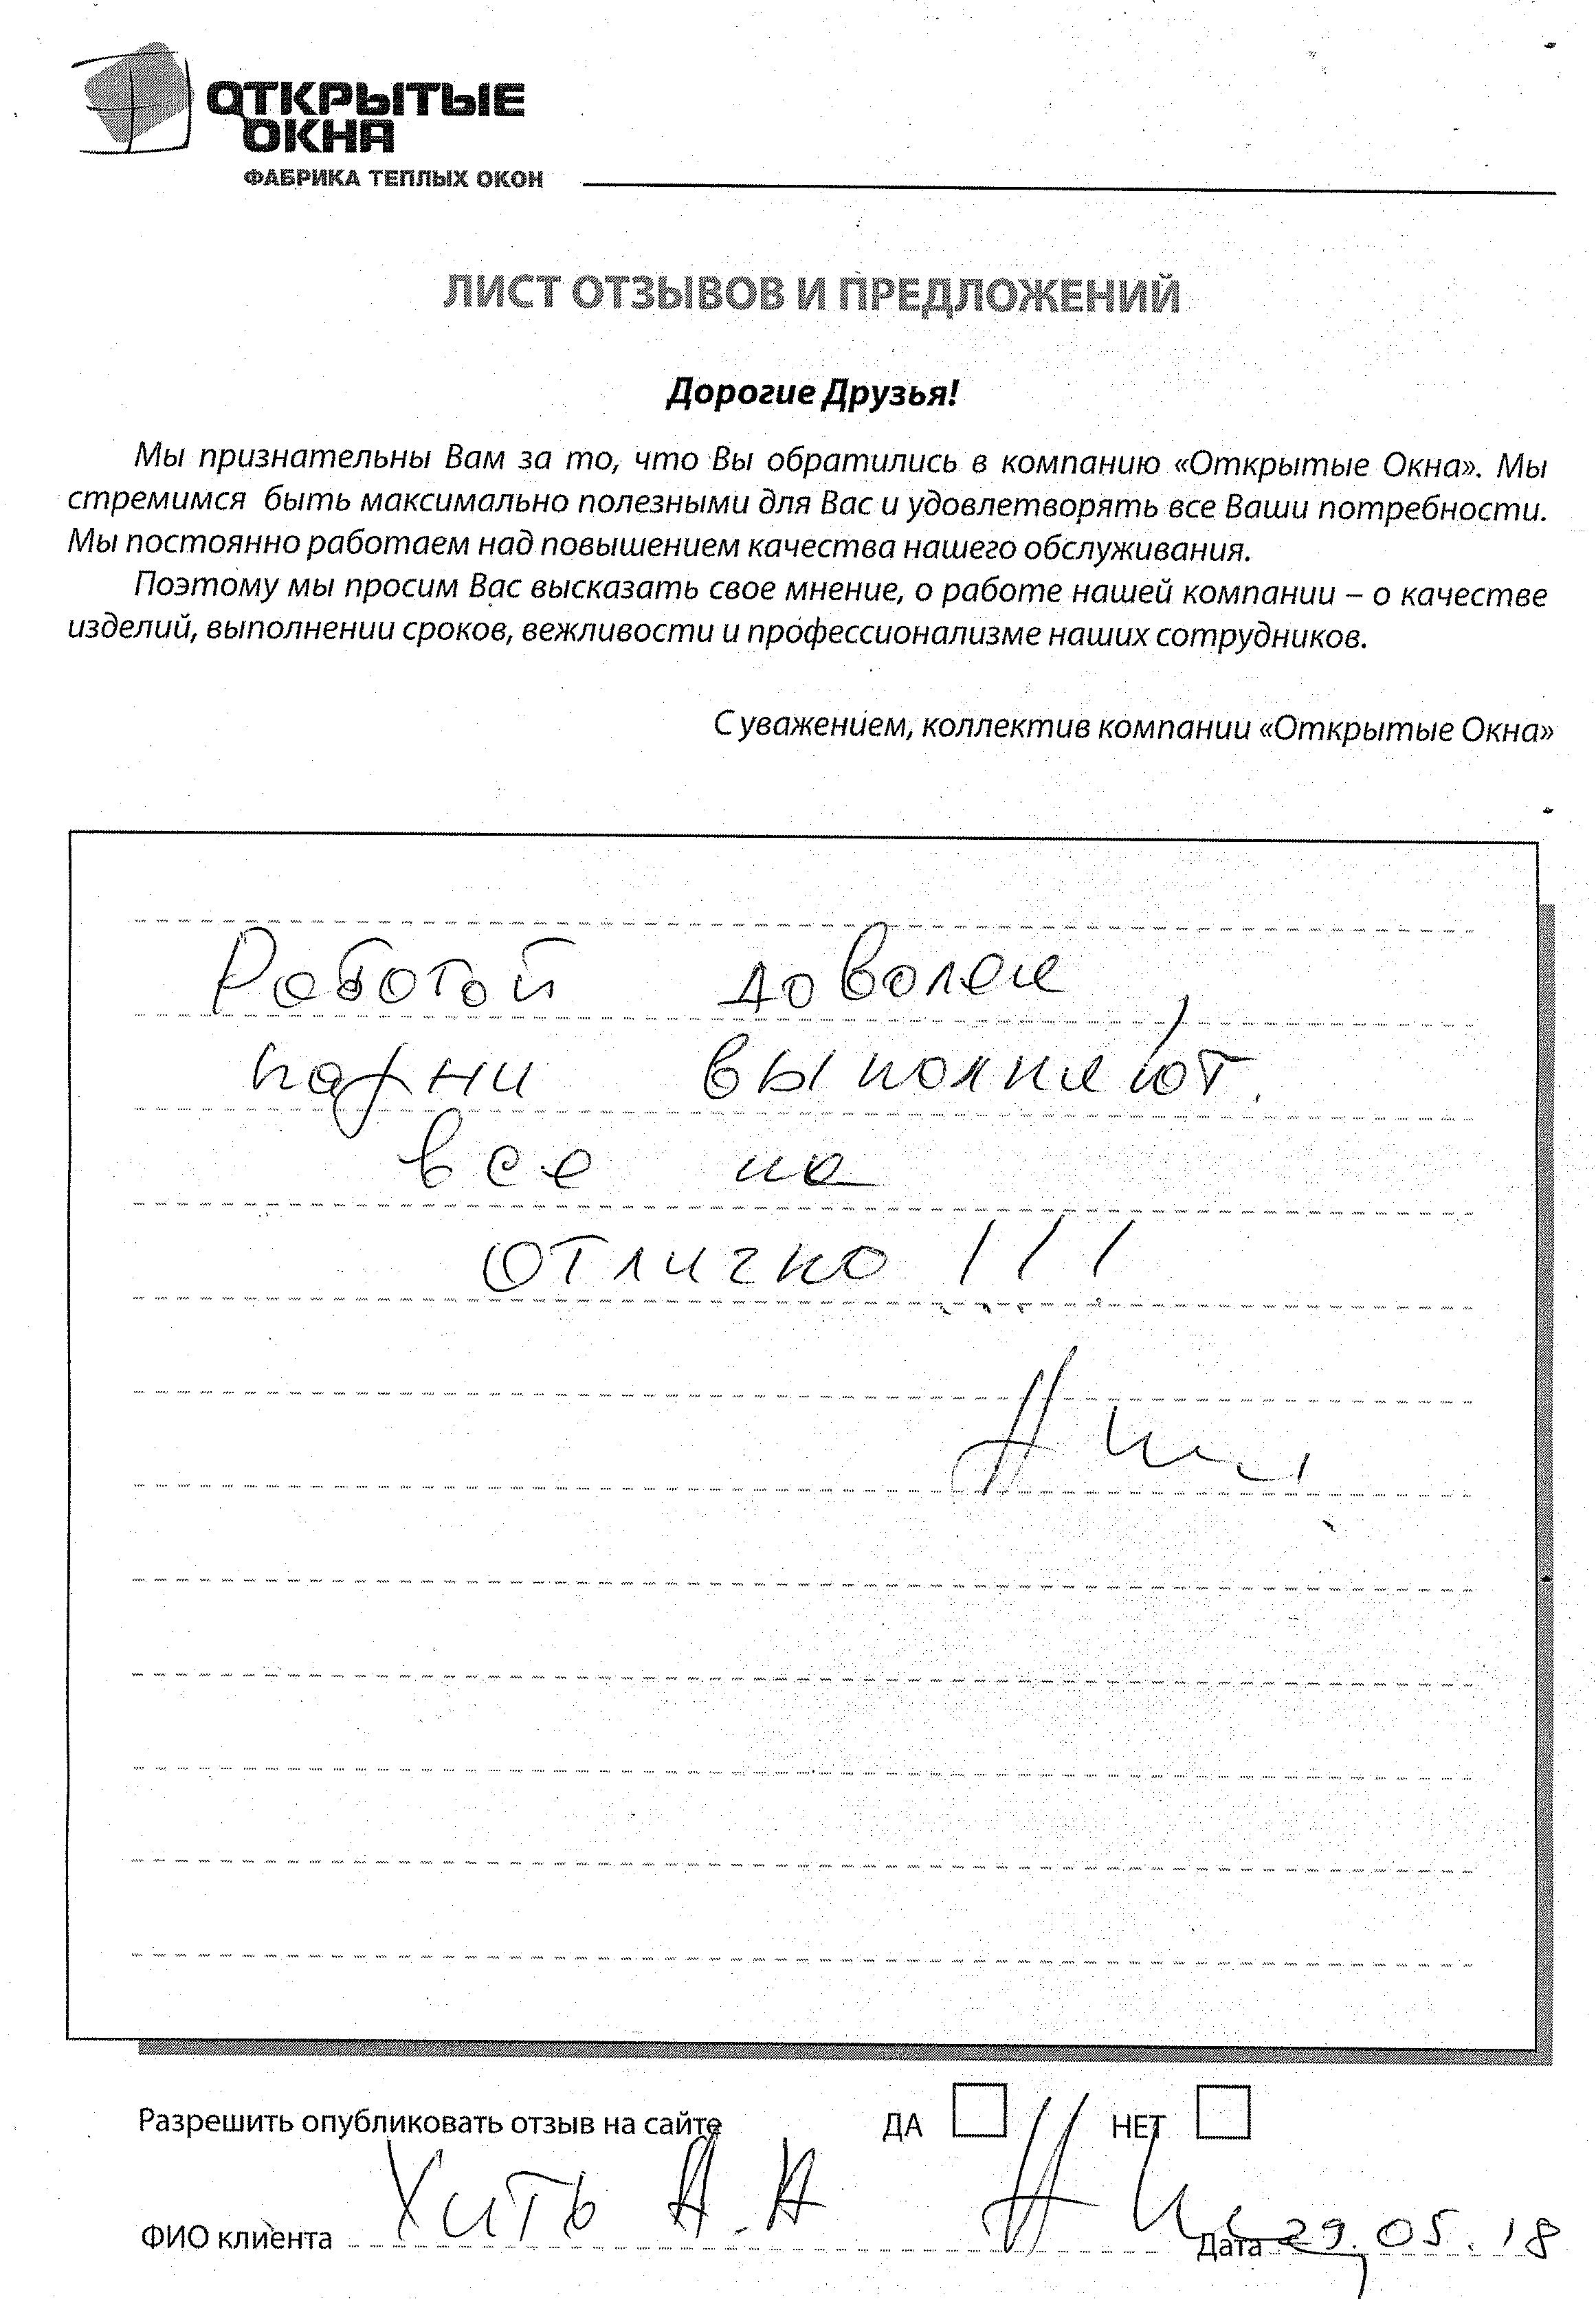 ОТКРЫТЫЕ
ОКНА
ФАБРИКА ТЕПЛЫХ ОКОН
ЛИСТ ОТЗЫВОВ И ПРЕДЛОЖЕНИЙ
Дорогие Друзья!
Мы признательны Вам за то, что Вы обратились в компанию «Открытые Окна». Мы
стремимся быть максимально полезными для Вас и удовлетворять все Ваши потребности.
Мы постоянно работаем над повышением качества нашего обслуживания.
Поэтому мы просим Вас высказать свое мнение, о работе нашей компании – о качестве
изделий, выполнении сроков, вежливости и профессионализме наших сотрудников.
С уважением, коллектив компании «Открытые Окна»
Работой доволен,
парни выполняют
все на
отлично !!!
Разрешить опубликовать отзыв на сайте ДА НЕТ
ФИО клиента Хить А.А Дата 29.05.18